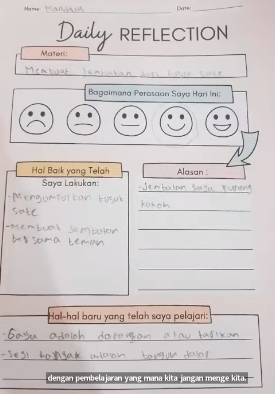 Name: Mandala
Date:
Daily REFLECTION
Materi:
Membuat jembatan dari tusuk sate
Bagaimana Perasaan Saya Hari Ini:
Hal Baik yang Telah
Saya Lakukan:
Alasan :
-Mengumpulkan tusuk
sate
-membuat jembatan
bersama teman
-Jembatan saya kurang
kokoh
Hal-hal baru yang telah saya pelajari:
-Gaya adalah dorongan atau tarikan
-Segi banyak adalah bangun datar
dengan pembelajaran yang mana kita jangan menge kite.